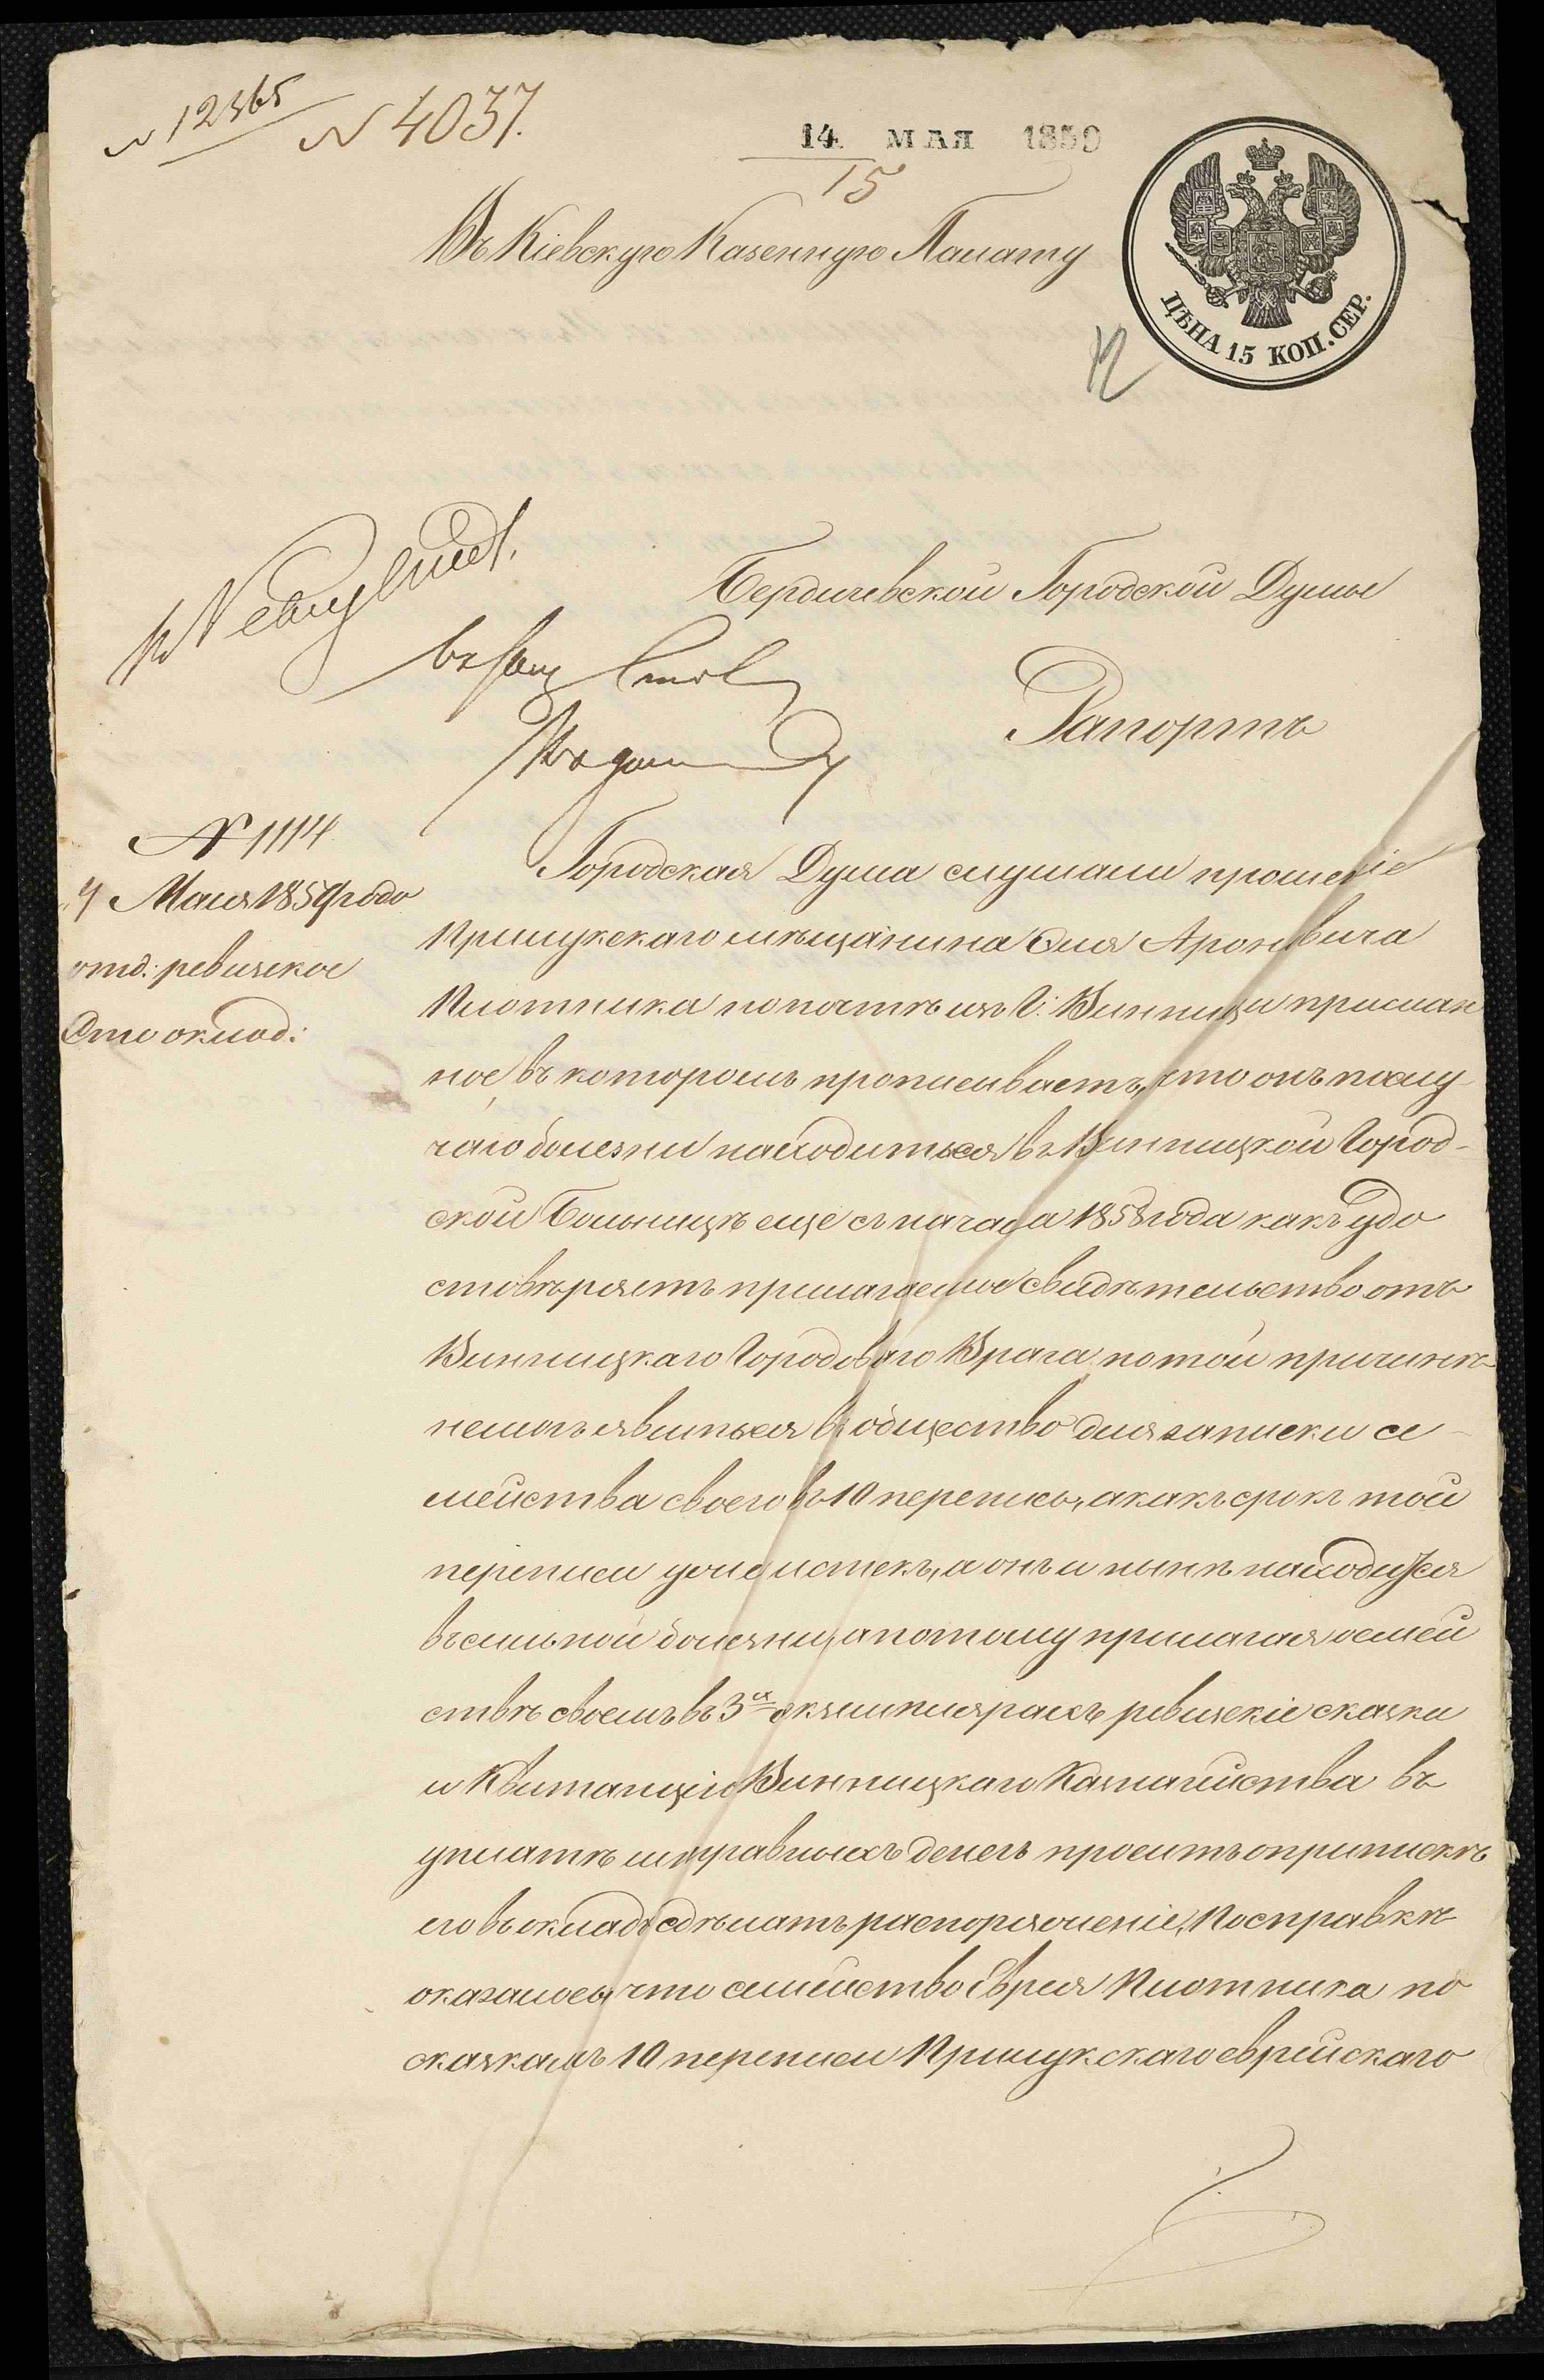 N 12365
N 4037.
14 МАЯ 1859
15
Въ Кіевскую Казенную Палату
ЦѢНА 15 КОП. СЕР.
12
Бердичевской Городской Думы
Рапортъ
N 1114
Мая 1859 года
отд: ревизское
Сто оклад:
Городская Дума слушали прошеніе
Прилукскаго мѣщанина Эля Ароновича
Плотника по почтѣ изъ Г. Винницы прислан
ное, въ которомъ прописываетъ, что онъ по слу
чаю болезни находиться въ Винницкой Город-
ской Больницѣ еще съ начала 1858 года какъ удо
стовѣряетъ прилагаемое свидѣтельство отъ
Винницкаго Городоваго Врача, по той причинѣ
немогъ явиться въ общество для записки се-
мейства своего въ 10 перепись, а какъ срокъ той
переписи уже истекъ, а онъ и нынѣ находится
въ сильной болезни, а потому прилагая о семей
ствѣ своемъ въ 3х экземплярахъ ревизскіе сказки
и Квитанцію Винницкаго Казначейства въ
уплатѣ штрафныхъ денегъ проситъ о припискѣ
его въ окладъ сдѣлать распоряженіе, По справкѣ
оказалось, что семейство Еврея Плотника по
сказкамъ 10 переписи Прилукскаго еврейскаго